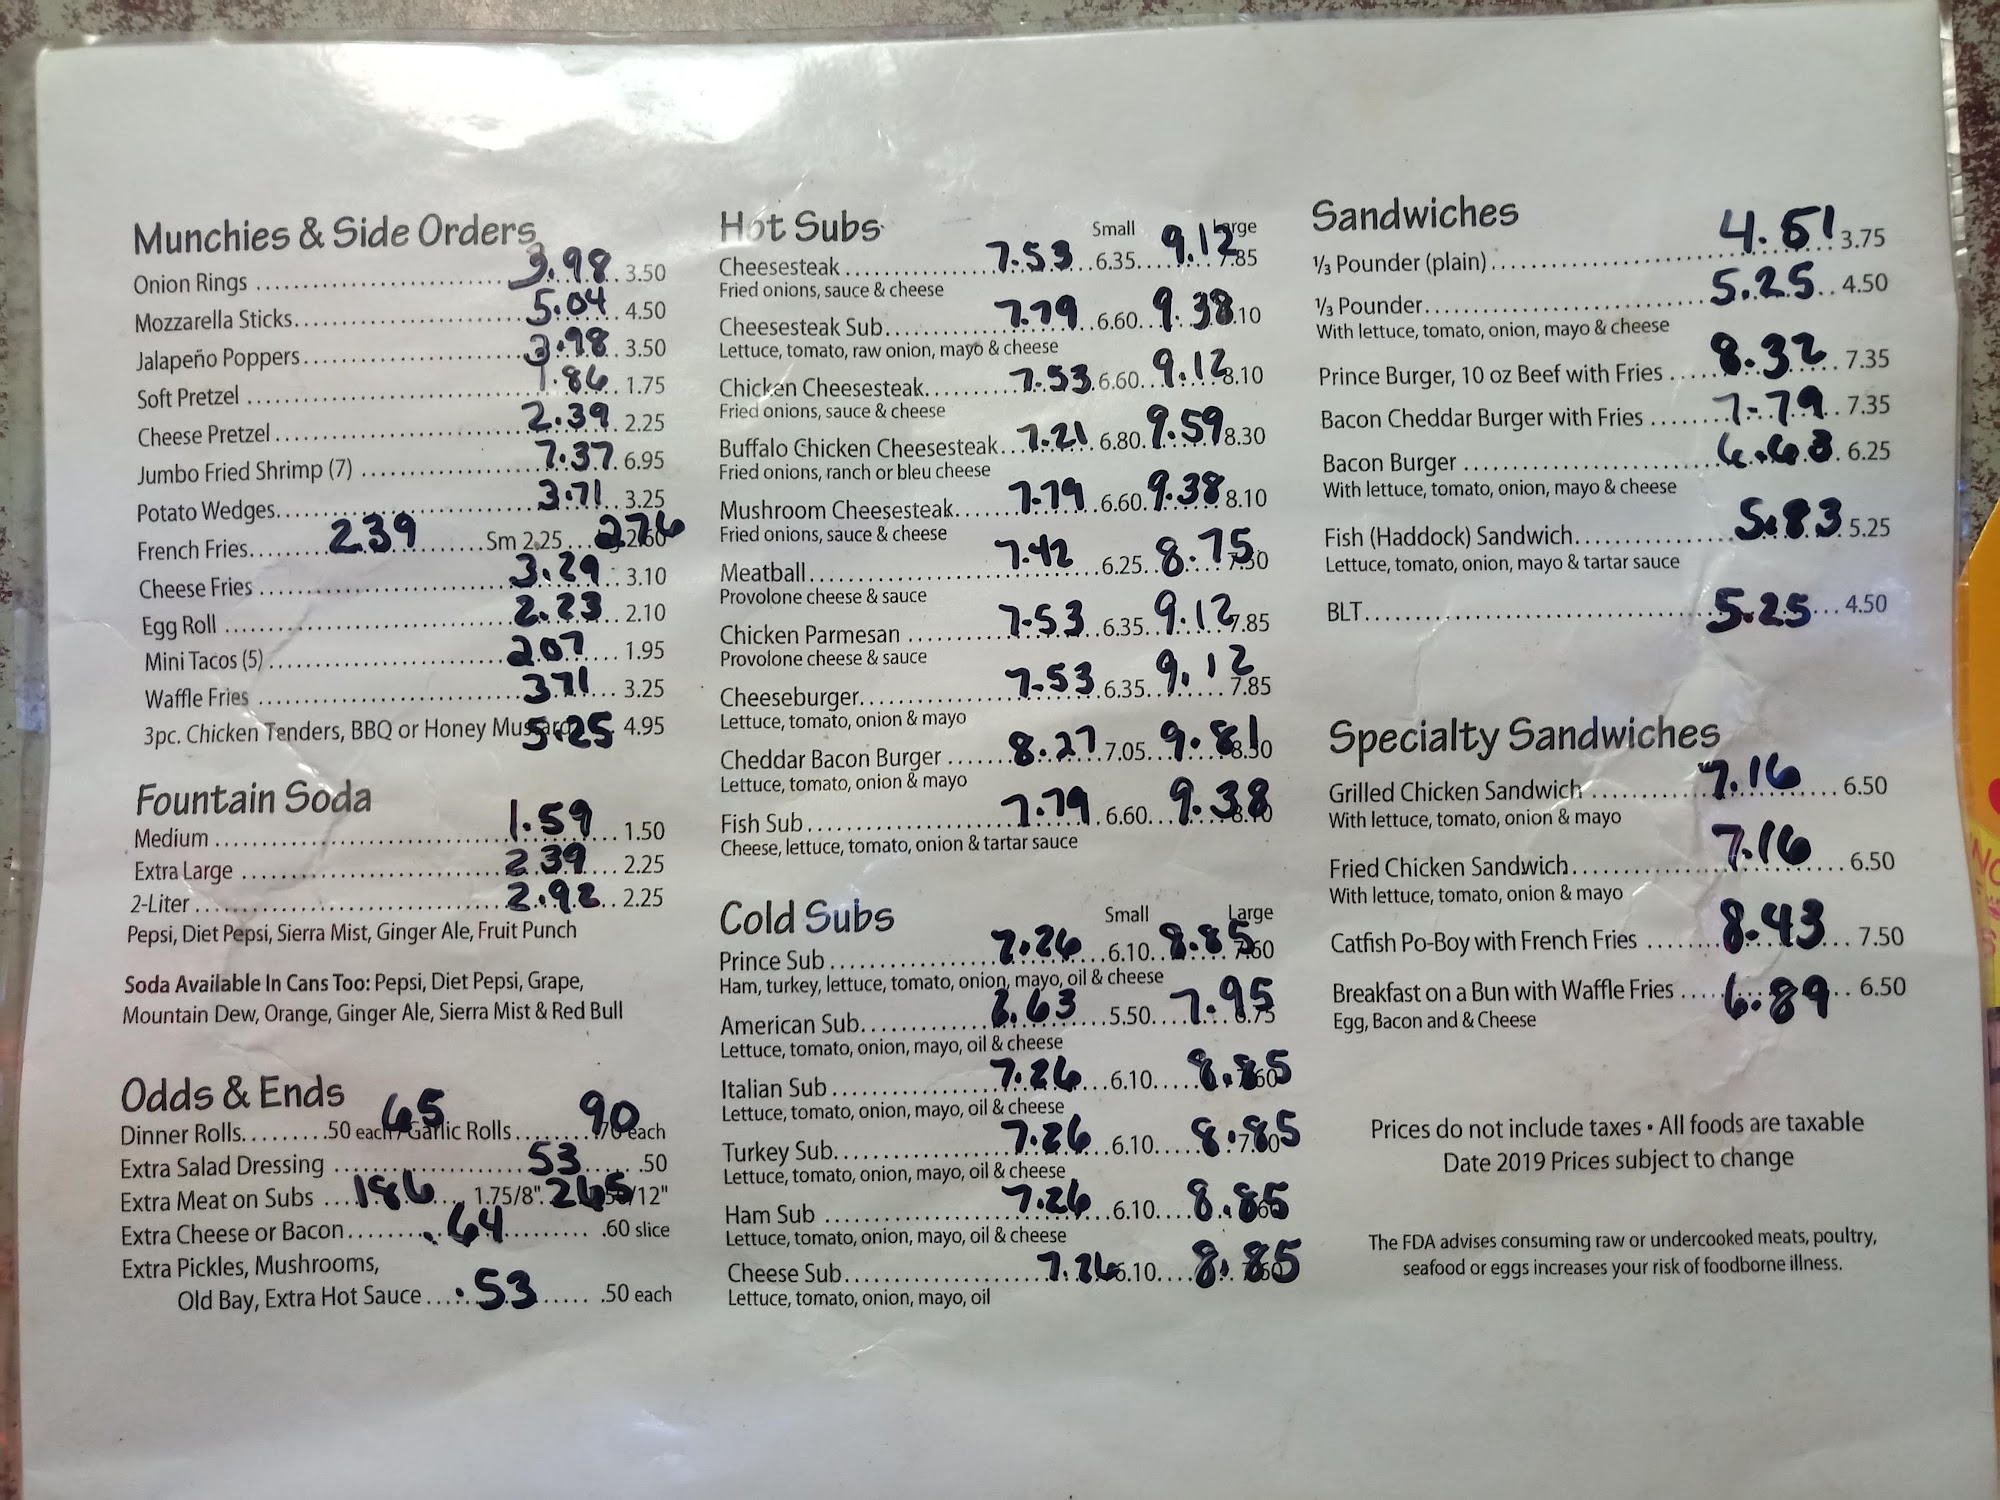 Munchies & Side Orders
Onion Rings ........ 3.98 3.50
Mozzarella Sticks........ 5.04 4.50
Jalapeño Poppers........ 3.98 3.50
Soft Pretzel ........ 1.86 1.75
Cheese Pretzel........ 2.39 2.25
Jumbo Fried Shrimp (7) ........ 7.37 6.95
Potato Wedges........ 3.71 3.25
French Fries........ 2.39 Sm 2.25 ... 276 2.60
Cheese Fries ........ 3.29 3.10
Egg Roll ........ 2.23 2.10
Mini Tacos (5) ........ 207 1.95
Waffle Fries ........ 371 3.25
3pc. Chicken Tenders, BBQ or Honey Mustard 5.25 4.95
Fountain Soda
Medium ........ 1.59 1.50
Extra Large ........ 2.39 2.25
2-Liter ........ 2.92 2.25
Pepsi, Diet Pepsi, Sierra Mist, Ginger Ale, Fruit Punch
Soda Available In Cans Too: Pepsi, Diet Pepsi, Grape,
Mountain Dew, Orange, Ginger Ale, Sierra Mist & Red Bull
Odds & Ends
Dinner Rolls........ .50 each 65 / Garlic Rolls ........ 90 each
Extra Salad Dressing ........ 53 .50
Extra Meat on Subs .... 186 .... 1.75/8". 265 /12"
Extra Cheese or Bacon........ .64 ........ .60 slice
Extra Pickles, Mushrooms,
Old Bay, Extra Hot Sauce .... .53 ...... .50 each
Hot Subs Small Large
Cheesesteak ........ 7.53 6.35 .... 9.12 7.85
Fried onions, sauce & cheese
Cheesesteak Sub........ 7.79 6.60 .. 9.38 8.10
Lettuce, tomato, raw onion, mayo & cheese
Chicken Cheesesteak........ 7.53 6.60 ... 9.12 8.10
Fried onions, sauce & cheese
Buffalo Chicken Cheesesteak... 7.21 6.80. 9.59 8.30
Fried onions, ranch or bleu cheese
Mushroom Cheesesteak........ 7.79 6.60 9.38 8.10
Fried onions, sauce & cheese
Meatball........ 7.42 6.25 .. 8.75 7.50
Provolone cheese & sauce
Chicken Parmesan ........ 7.53 6.35 .. 9.12 7.85
Provolone cheese & sauce
Cheeseburger........ 7.53 6.35 .. 9.12 7.85
Lettuce, tomato, onion & mayo
Cheddar Bacon Burger ...... 8.27 7.05 .. 9.81 8.30
Lettuce, tomato, onion & mayo
Fish Sub........ 7.79 6.60 ... 9.38 8.10
Cheese, lettuce, tomato, onion & tartar sauce
Cold Subs Small Large
Prince Sub ........ 7.26 6.10 .. 8.85 7.60
Ham, turkey, lettuce, tomato, onion, mayo, oil & cheese
American Sub........ 6.63 5.50 .... 7.95 6.75
Lettuce, tomato, onion, mayo, oil & cheese
Italian Sub ........ 7.26 6.10 ..... 8.85 7.60
Lettuce, tomato, onion, mayo, oil & cheese
Turkey Sub........ 7.26 6.10 ..... 8.85 7.60
Lettuce, tomato, onion, mayo, oil & cheese
Ham Sub ........ 7.26 6.10 .... 8.85 7.60
Lettuce, tomato, onion, mayo, oil & cheese
Cheese Sub........ 7.26 6.10 .... 8.85 7.60
Lettuce, tomato, onion, mayo, oil
Sandwiches
⅓ Pounder (plain)........ 4.51 3.75
⅓ Pounder........ 5.25 4.50
With lettuce, tomato, onion, mayo & cheese
Prince Burger, 10 oz Beef with Fries .... 8.32 7.35
Bacon Cheddar Burger with Fries ...... 7.79 7.35
Bacon Burger ........ 6.63 6.25
With lettuce, tomato, onion, mayo & cheese
Fish (Haddock) Sandwich........ 5.83 5.25
Lettuce, tomato, onion, mayo & tartar sauce
BLT........ 5.25 4.50
Specialty Sandwiches
Grilled Chicken Sandwich ........ 7.16 6.50
With lettuce, tomato, onion & mayo
Fried Chicken Sandwich........ 7.16 6.50
With lettuce, tomato, onion & mayo
Catfish Po-Boy with French Fries ...... 8.43 7.50
Breakfast on a Bun with Waffle Fries .... 6.89 6.50
Egg, Bacon and & Cheese
Prices do not include taxes • All foods are taxable
Date 2019 Prices subject to change
The FDA advises consuming raw or undercooked meats, poultry,
seafood or eggs increases your risk of foodborne illness.